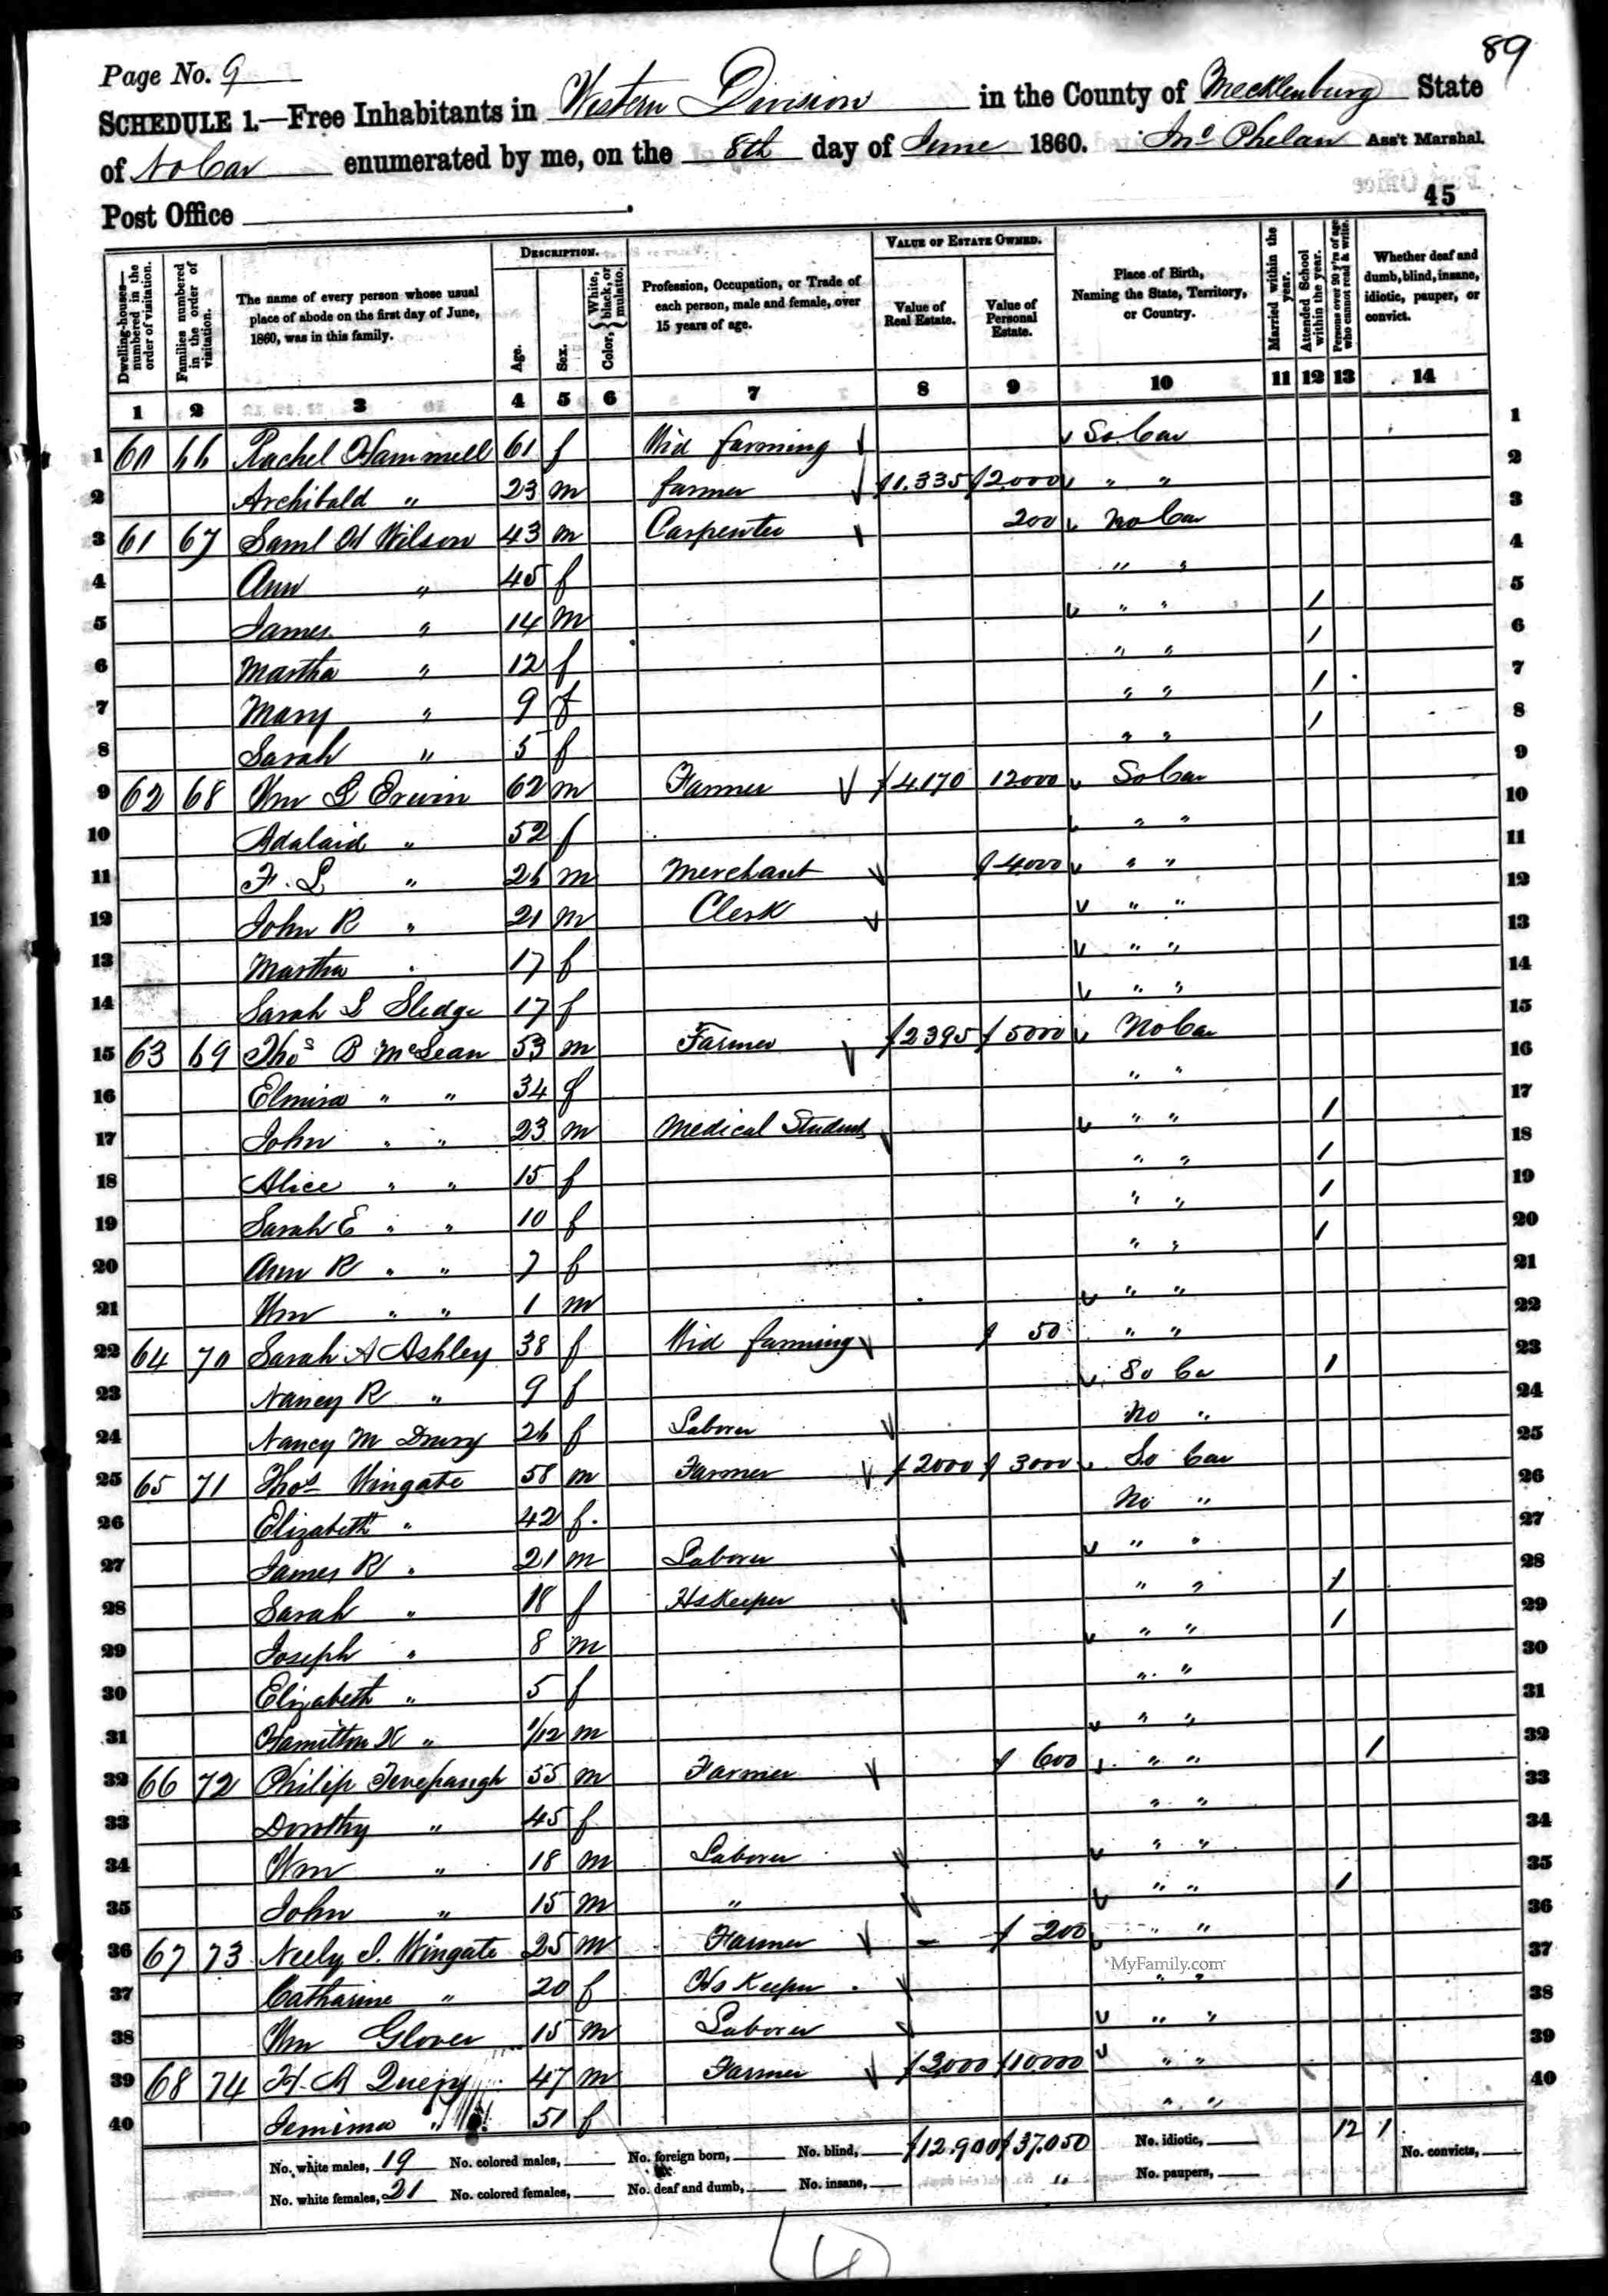 89
Page No. 9
SCHEDULE 1.—Free Inhabitants in Western Division in the County of Mecklenburg State
of No Car enumerated by me, on the 8th day of June 1860. Jno Phelan Ass't Marshal.
45
Post Office
Dwelling-houses—numbered in the order of visitation. Families numbered in the order of visitation. The name of every person whose usual place of abode on the first day of June, 1860, was in this family. DESCRIPTION. Age. Sex. Color, { White, black, or mulatto. Profession, Occupation, or Trade of each person, male and female, over 15 years of age. VALUE OF ESTATE OWNED. Value of Real Estate. Value of Personal Estate. Place of Birth, Naming the State, Territory, or Country. Married within the year. Attended School within the year. Persons over 20 y'rs of age who cannot read & write. Whether deaf and dumb, blind, insane, idiotic, pauper, or convict.
1 2 3 4 5 6 7 8 9 10 11 12 13 14
1 60 66 Rachel Hammell 61 f Wid farming So Car 1
2 Archibald " 23 m farmer $1.335 $2000 " " 2
3 61 67 Saml W Wilson 43 m Carpenter 200 No Car 3
4 Ann " 45 f " " 4
5 James " 14 m " " 1 5
6 Martha " 12 f " " 1 6
7 Mary " 9 f " " 1 7
8 Sarah " 5 f " " 1 8
9 62 68 Wm L Erwin 62 m Farmer $4170 12000 So Car 9
10 Adalaid " 52 f " " 10
11 F. L " 26 m Merchant $4000 " " 11
12 John R " 21 m Clerk " " 12
13 Martha " 17 f " " 13
14 Sarah L Sledge 17 f " " 14
15 63 69 Thos B McLean 53 m Farmer $2395 $5000 No Car 15
16 Elmira " " 34 f " " 16
17 John " " 23 m Medical Student " " 1 17
18 Alice " " 15 f " " 1 18
19 Sarah E " " 10 f " " 1 19
20 Ann R " " 7 f " " 1 20
21 Wm " " 1 m " " 21
22 64 70 Sarah A Ashley 38 f Wid farming $50 " " 22
23 Nancy R " 9 f So Ca 1 23
24 Nancy M 26 f Laborer No " 24
25 65 71 Thos Wingate 58 m Farmer $2000 $3000 So Car 25
26 Elizabeth " 42 f No " 26
27 James R " 21 m Laborer " " 27
28 Sarah " 18 f HsKeeper " " 1 28
29 Joseph " 8 m " " 1 29
30 Elizabeth " 5 f " " 30
31 Hamilton " 1/12 m " " 31
32 66 72 Philip 55 m Farmer $600 " " 1 32
33 Dorothy " 45 f " " 33
34 Wm " 18 m Laborer " " 34
35 John " 15 m " " " 1 35
36 67 73 Neely J. Wingate 25 m Farmer - $200 " " 36
37 Catharine " 20 f Hs Keeper " " 37
38 Wm Glover 15 m Laborer " " 38
39 68 74 H. A Query 47 m Farmer $3000 $10000 " " 39
40 Jemima " 51 f " " 40
MyFamily.com
No. white males, 19 No. colored males, No. foreign born, No. blind, $12.900 $37.050 No. idiotic, 12 1 No. convicts,
No. white females, 21 No. colored females, No. deaf and dumb, No. insane, " No. paupers,